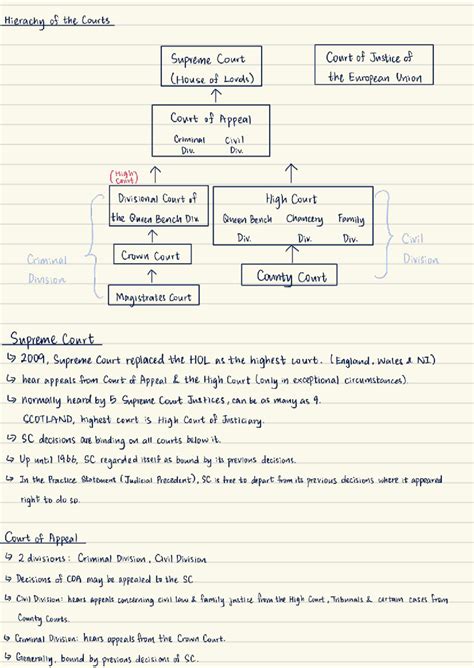 Hierachy of the Courts
Supreme Court
(House of Lords)
Court of Justice of
the European Union
Court of Appeal
Criminal Civil
Div. Div.
(High
Court)
Divisional Court of
the Queen Bench Div.
High Court
Queen Bench Chancery Family
Div. Div. Div.
Crown Court
County Court
Magistrates Court
Criminal
Division
Civil
Division
Supreme Court
↳ 2009, Supreme Court replaced the HOL as the highest court. (England, Wales & NI)
↳ hear appeals from Court of Appeal & the High Court (only in exceptional circumstances).
↳ normally heard by 5 Supreme Court Justices, can be as many as 9.
SCOTLAND, highest court is High Court of Justiciary.
↳ SC decisions are binding on all courts below it.
↳ Up until 1966, SC regarded itself as bound by its previous decisions.
↳ In the Practice Statement (Judicial Precedent), SC is free to depart from its previous decisions where it appeared
right to do so.
Court of Appeal
↳ 2 divisions: Criminal Division, Civil Division
↳ Decisions of COA may be appealed to the SC
↳ Civil Division: hears appeals concerning civil law & family justice from the High Court, Tribunals & certain cases from
County Courts.
↳ Criminal Division: hears appeals from the Crown Court.
↳ Generally, bound by previous decisions of SC.